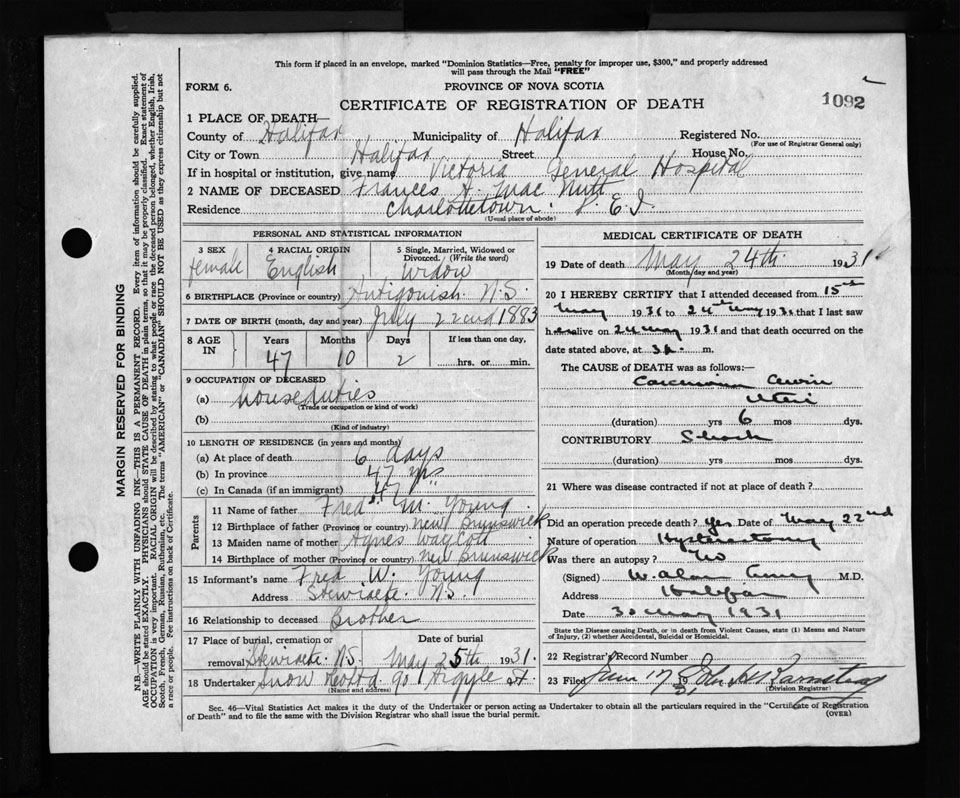 This form if placed in an envelope, marked "Dominion Statistics—Free, penalty for improper use, $300," and properly addressed
will pass through the Mail "FREE"
FORM 6.
PROVINCE OF NOVA SCOTIA
CERTIFICATE OF REGISTRATION OF DEATH
1092
1 PLACE OF DEATH—
County of Halifax Municipality of Halifax Registered No.
(For use of Registrar General only)
City or Town Halifax Street House No.
If in hospital or institution, give name Victoria General Hospital
2 NAME OF DECEASED Frances H. Mac Nutt
Residence Charlottetown. P. E. I.
(Usual place of abode)
PERSONAL AND STATISTICAL INFORMATION
3 SEX female
4 RACIAL ORIGIN English
5 Single, Married, Widowed or
Divorced. (Write the word)
widow
6 BIRTHPLACE (Province or country) Antigonish N.S.
7 DATE OF BIRTH (month, day and year) July 22nd 1883
8 AGE IN
Years Months Days If less than one day,
47 10 2 hrs. or min.
9 OCCUPATION OF DECEASED
(a) houseduties
(Trade or occupation or kind of work)
(b)
(Kind of industry)
10 LENGTH OF RESIDENCE (in years and months)
(a) At place of death 6 days
(b) In province 47 yrs
(c) In Canada (if an immigrant) 47 "
Parents
11 Name of father Fred M. Young
12 Birthplace of father (Province or country) New Brunswick
13 Maiden name of mother Agnes Waycott
14 Birthplace of mother (Province or country) New Brunswick
15 Informant's name Fred W. Young
Address Stewiacke. N.S.
16 Relationship to deceased Brother
17 Place of burial, cremation or Date of burial
removal Stewiacke. N.S. May 25th 1931.
18 Undertaker Snow 90 Argyle st.
(Name and address)
MEDICAL CERTIFICATE OF DEATH
19 Date of death May 24th 1931
(Month, day and year)
20 I HEREBY CERTIFY that I attended deceased from 15th
May 1931 to 24th May 1931 that I last saw
h er alive on 24 May 1931 and that death occurred on the
date stated above, at m.
The CAUSE of DEATH was as follows:—
Carcinoma Cervix
Uteri
(duration) yrs 6 mos dys.
CONTRIBUTORY Shock
(duration) yrs mos dys.
21 Where was disease contracted if not at place of death?
Did an operation precede death? Yes Date of May 22nd
Nature of operation Hysterectomy
Was there an autopsy? No
(Signed) W. Alan M.D.
Address Halifax
Date 30 May 1931
State the Disease causing Death, or in death from Violent Causes, state (1) Means and Nature
of Injury, (2) whether Accidental, Suicidal or Homicidal.
22 Registrar's Record Number
23 Filed June 17 19 31
(Division Registrar)
Sec. 46—Vital Statistics Act makes it the duty of the Undertaker or person acting as Undertaker to obtain all the particulars required in the "Certificate of Registration
of Death" and to file the same with the Division Registrar who shall issue the burial permit.
(OVER)
MARGIN RESERVED FOR BINDING
N.B.—WRITE PLAINLY WITH UNFADING INK—THIS IS A PERMANENT RECORD. Every item of information should be carefully supplied.
AGE should be stated EXACTLY. PHYSICIANS should STATE CAUSE OF DEATH in plain terms, so that it may be properly classified. Exact statement of
OCCUPATION is very important. RACIAL ORIGIN will be described by stating to what people or race the deceased person belonged, whether English, Irish,
Scotch, French, German, Russian, Ruthenian, etc. The terms "AMERICAN" or "CANADIAN" SHOULD NOT BE USED as they express citizenship but not
a race or people. Fee instructions on back of Certificate.